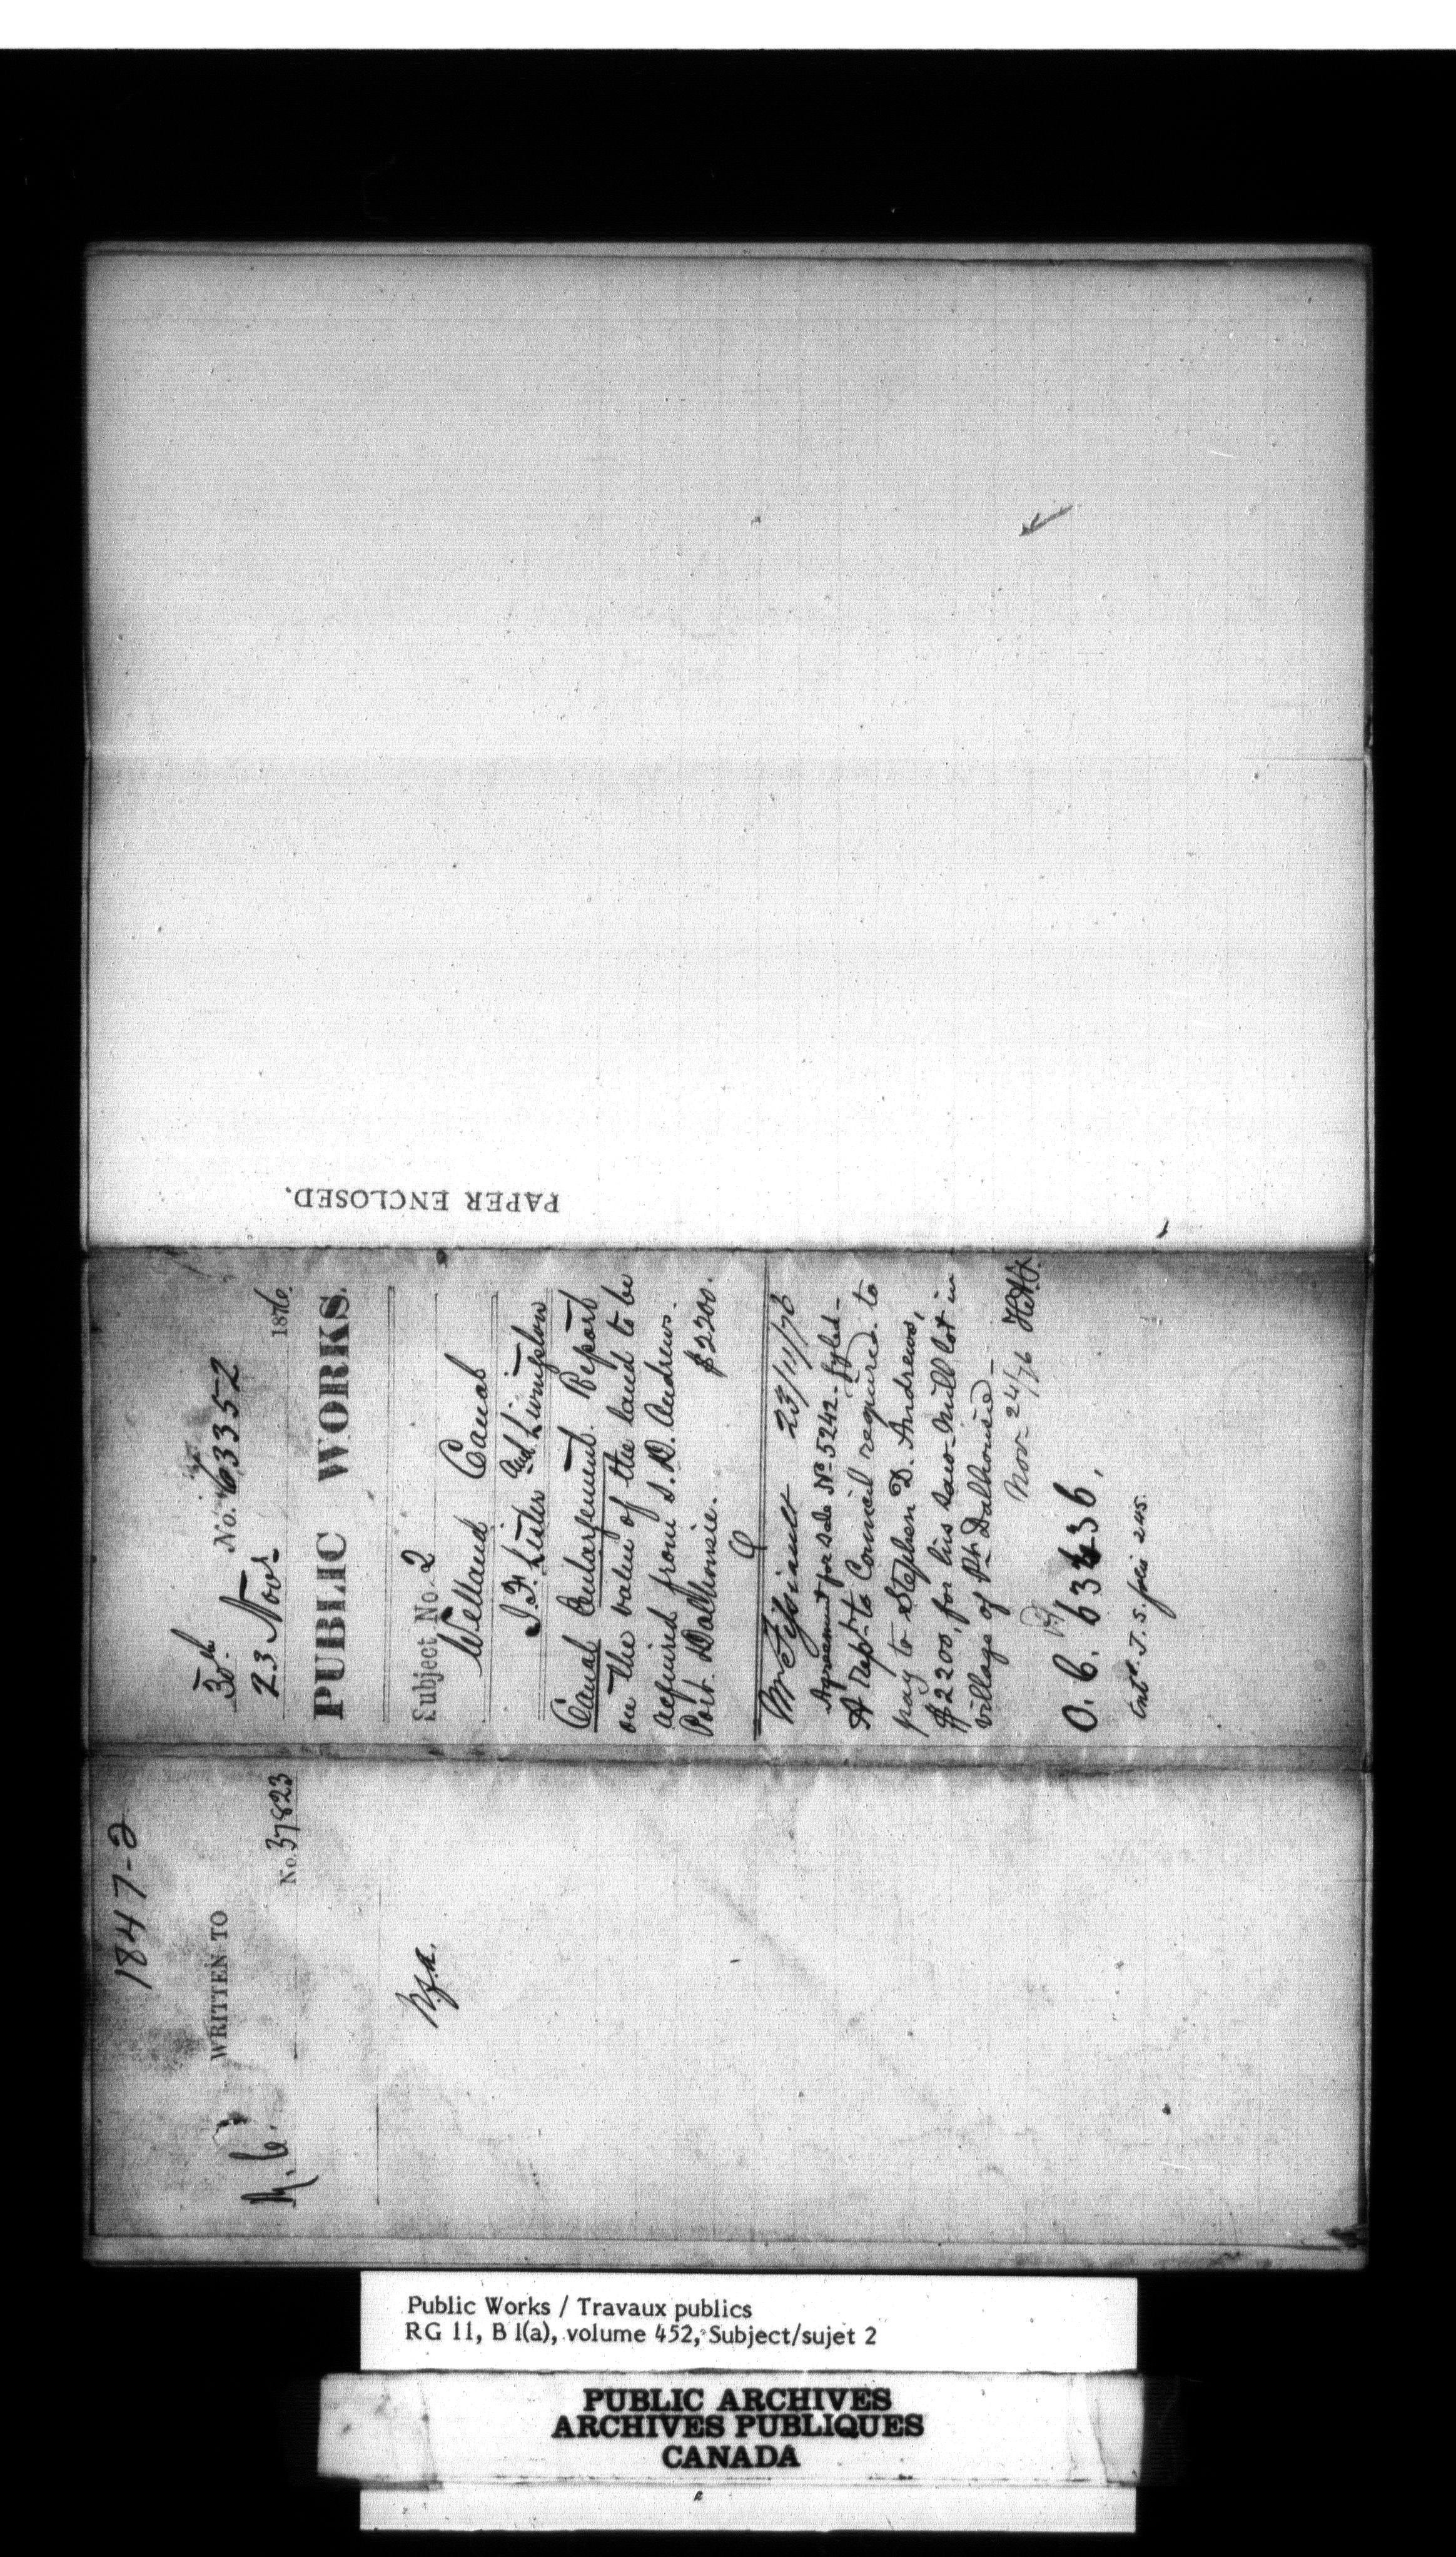 PAPER ENCLOSED.
No. 63352
23 Novr 1876.
PUBLIC WORKS.
Subject No. 2
Welland Canal
J. F. Lister and Livingston
Canal Enlargement. Report
on the value of the land to be
acquired from S. D. Andrews.
Port Dalhousie. $2200.
Mr Fissiault 23/11/76
Agreement for sale No 5242 - fyled -
A rept. to Council required to
pay to Stephen D. Andrews,
$2200, for his saw-mill lot in
village of Pt. Dalhousie -
Nov. 24/76 H.A.F.
O. C. 63636,
Entd. J. S. folio 245.
1847-2
WRITTEN TO
No. 37823
Public Works / Travaux publics
RG 11, B 1(a), volume 452, Subject/sujet 2
PUBLIC ARCHIVES
ARCHIVES PUBLIQUES
CANADA